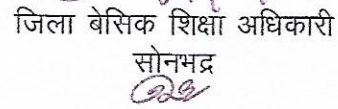 जिला बेसिक शिक्षा अधिकारी
सोनभद्र